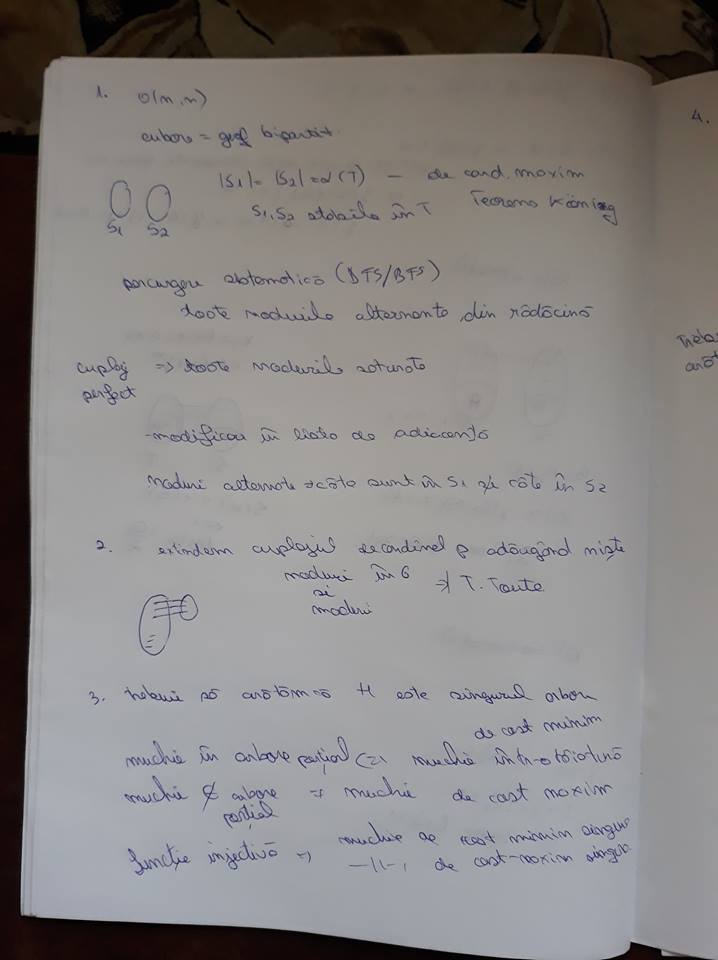 1. O(n,n)
arbore = graf bipartit
|S1| = |S2| = α(T) – de card. maxim
S1, S2 stabile în T Teorema König
S1 S2
parcurgere sistematică (DFS/BFS)
toate nodurile alternante din rădăcină
cuplaj => toate nodurile saturate
perfect
- modificau în lista de adiacență
noduri alternate câte sunt în S1 și câte în S2
2. extindem cuplajul de cardinal p adăugând niște
noduri în G => T. Tutte
si
noduri
3. trebuie să arătăm că H este singurul arbore
de cost minim
muchie în arbore parțial <=> muchie într-o tăietură
muchie ∉ arbore => muchie de cost maxim
parțial
funcție injectivă => muchie de cost minim singura
–||– de cost maxim singura
4.